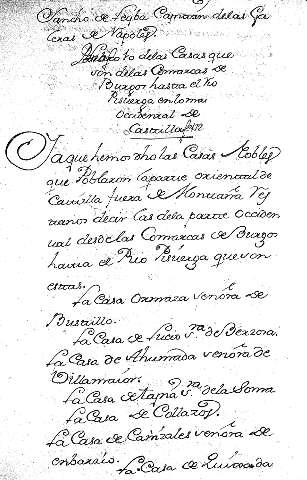 Sancho de Leyba Capitan delas Ga
leras de Napoles
delas Casas que
son delas Comarcas de
Burgos hasta el Rio
Pisuerga en lo mas
Occidental de
Castilla
Ya que hemos dho las Casas Nobles
que Poblaron la parte oriental de
Castilla fuera de Montaña res
tanos decir las dela parte Occiden
tal desde las Comarcas de Burgos
hasta el Rio Pisuerga que son
estas.
La Casa Ormaza señora de
Bustillo.
La Casa de Lucio s.ra de
La Casa de Ahumada señora de
Villamaior.
La Casa de Tapia s.ra dela Loma
La Casa de Collazos
La Casa de Cañizales señora de
La Casa de Quixada